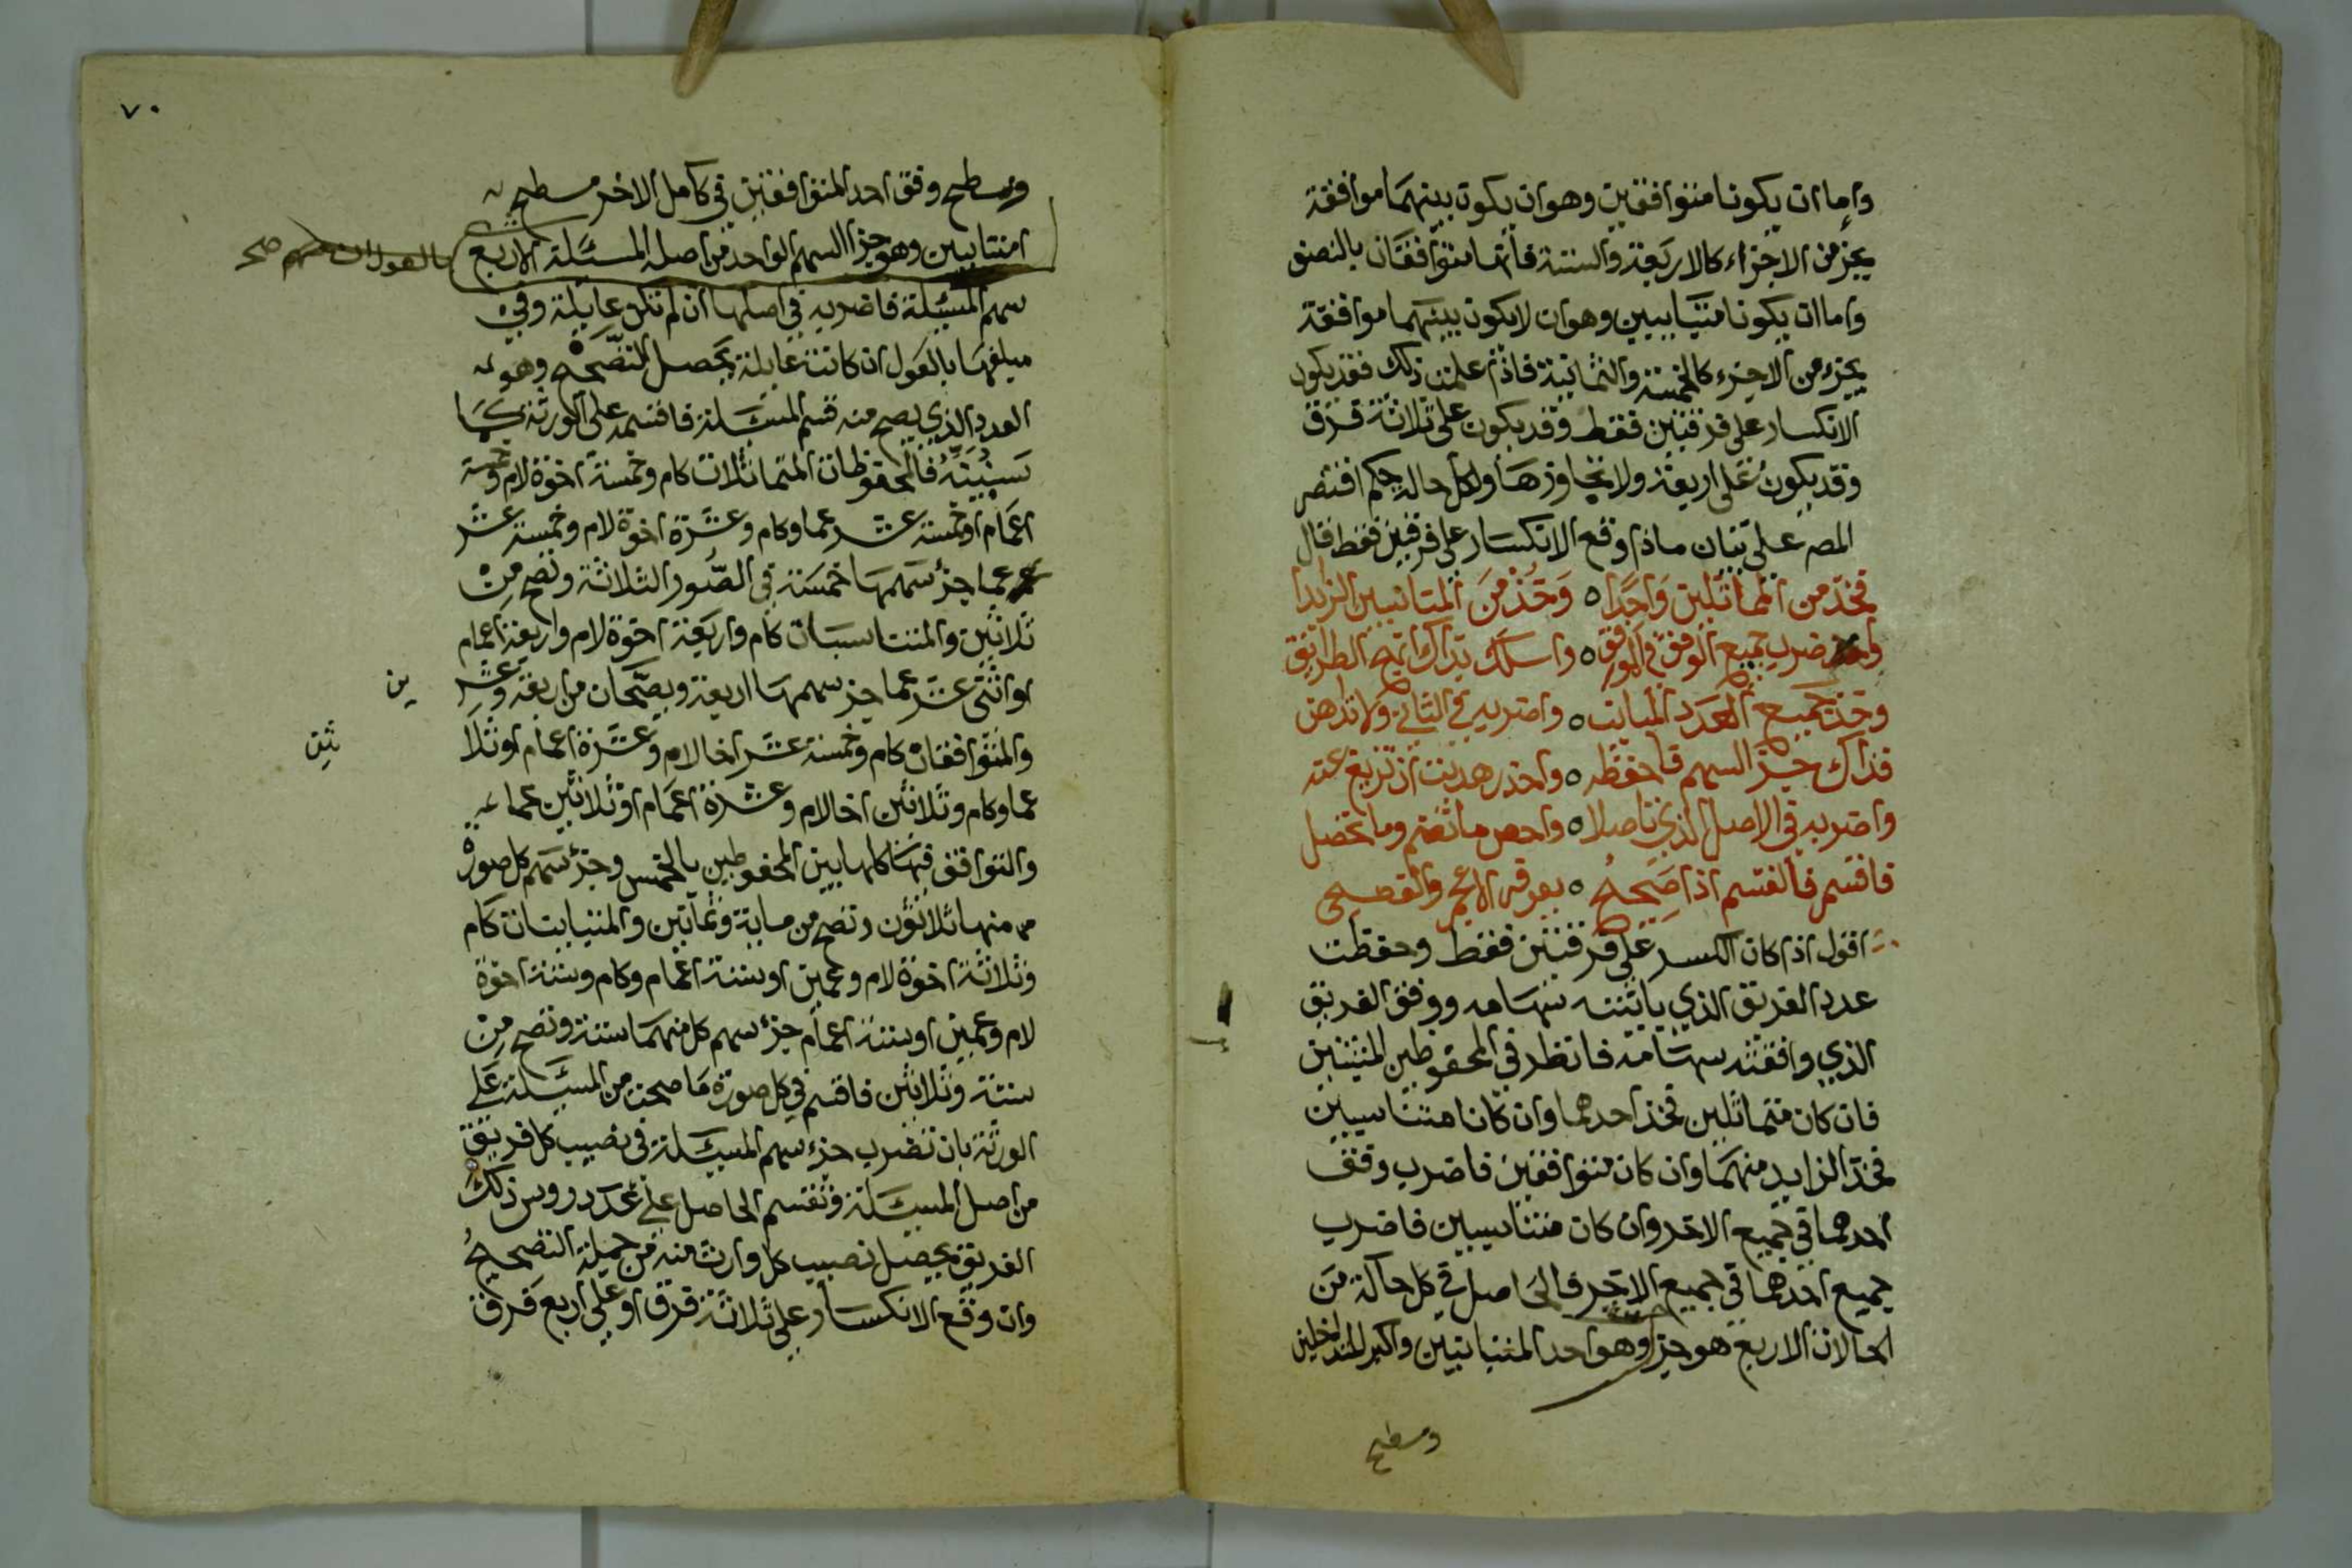 واما ان يكونا متوافقين وهو ان يكون بينهما موافقة
بجزء من الاجزاء كالاربعة والستة فانهما متوافقان بالنصف
واما ان يكونا متباينين وهو ان لا يكون بينهما موافقة
بجزء من الاجزء كالخمسة والثمانية فاذا علمت ذلك فقد يكون
الانكسار على فرقتين فقط وقد يكون على ثلاثة فرق
وقد يكون على اربعة ولا تجاوزها ولكل حالة حكم اقتصر
المص على بيان ماذا وقع الانكسار على فرقتين فقط فقال
فخذ من المماثلين واحدا ٥ وخذ من المناسبين الزايدا
واضرب جميع الوفق في الموافق ٥ واسلك بذاك انهج الطرايق
وخذ جميع العدد المباين ٥ واضربه في الثاني ولا تداهن
فذاك جزء السهم فاحفظه ٥ واحذر هديت ان تزيغ عنه
واضربه في الاصل الذي تاصلا ٥ واحص ما انضم وما تحصل
فاقسم فالقسم اذا صحيح ٥ يعرفه الاعجم والفصيح
اقول اذا كان الكسر على فرقتين فقط وحفظت
عدد الفريق الذي باينته سهامه ووفق الفريق
الذي وافقته سهامه فانظر في المحفوظين المثبتين
فان كان متماثلين فخذ احدهما وان كانا متناسبين
فخذ الزايد منهما وان كان متوافقين فاضرب وفق
احدهما في جميع الاخر وان كان متناسبين فاضرب
جميع احدهما في جميع الاخر فالحاصل في كل حالة من
الحالات الاربع هو جزء وهو احد المتباينين واكبر المتداخلين
ومسطح
٧٠
ومسطح وفق احد المتوافقين في كامل الاخر مسطح
المتباينين وهو جزا السهم الواحد من اصل المسئلة الاربع
صح
سهم المسئلة فاضربه في اصلها ان لم تكن عايلة وفي
مبلغها بالعول ان كانت عايلة يحصل التصحيح وهو
العدد الذي يصح منه قسم المسئلة فاقسمه على الورثة كما
سنبينه فالمحفوظان المتماثلان كام وخمسة اخوة لام وخمسة
اعمام او خمسة عشر عما وكام وعشرة اخوة لام وخمسة عشر
عما جزء سهمها خمسة في الصور الثلاثة وتصح من
ثلاثين والمتناسبان كام واربعة اخوة لام واربعة اعمام
او اثني عشر عما جزء سهمها اربعة ويصحان من اربعة وعشر
ين
والمتوافقان كام وخمسة عشر اخا لام وعشرة اعمام او ثلا
ثين
عما وكام وثلاثين اخا لام وعشرة اعمام او ثلاثين عما
والتوافق فيها كلها بين المحفوظين بالخمس وجزء سهم كل صورة
منها ثلاثون وتصح من ماية وثمانين والمتباينان كام
وثلاثة اخوة لام وعمين او ستة اعمام وكام وستة اخوة
لام وعمين او ستة اعمام جزء سهم كل منهما ستة وتصح من
ستة وثلاثين فاقسم في كل صورة ما صحت من المسئلة على
الورثة بان تضرب جزء سهم المسئلة في نصيب كل فريق
من اصل المسئلة وتقسم الحاصل على عدد روس ذلك
الفريق يحصل نصيب كل وارث منه من جملة التصحيح
وان وقع الانكسار على ثلاثة فرق او على اربع فرق